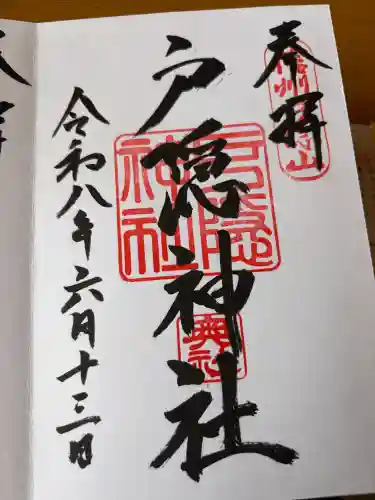 奉拝
信州戸隠山
戸隠神社
戸隠
神社
奥社
令和八年六月十三日